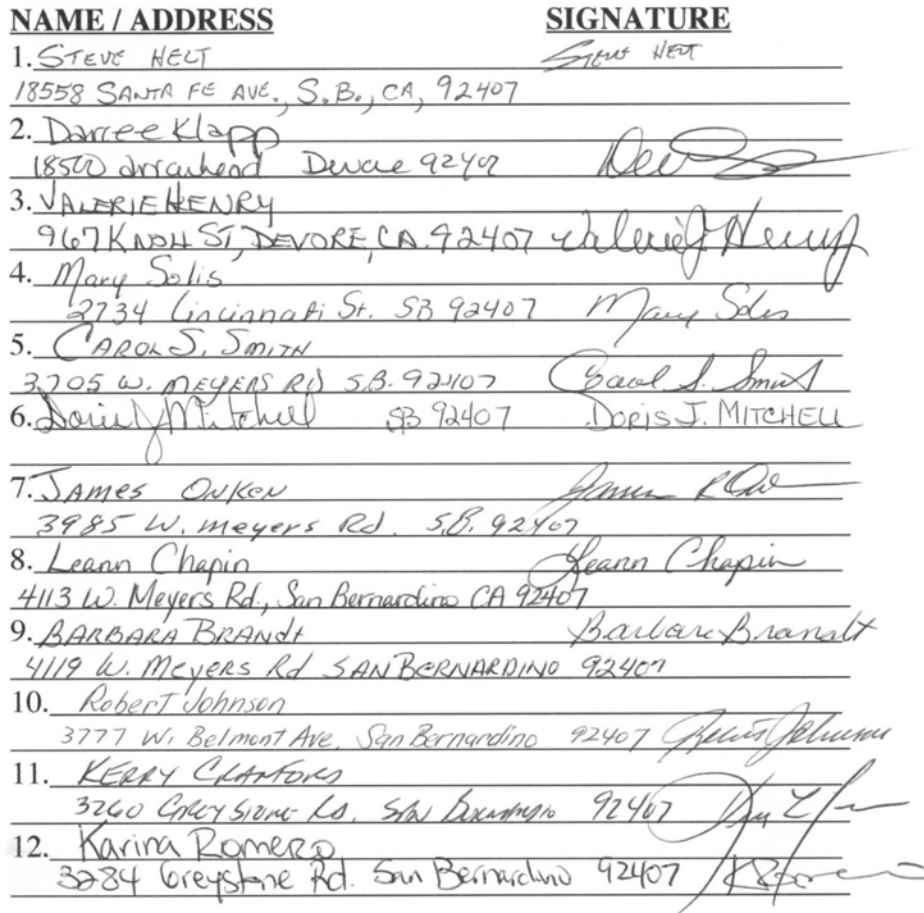 NAME / ADDRESS SIGNATURE
1. STEVE HELT STEVE HELT
18558 SANTA FE AVE., S.B., CA, 92407
2. Darcee Klapp
18500 arrowhead Devore 92407
3. VALERIE HENRY
967 KNOLL ST, DEVORE, CA. 92407 Valerie J Henry
4. Mary Solis
2734 Cincinnati St. SB 92407 Mary Solis
5. CAROL S. SMITH
3705 W. MEYERS RD S.B. 92407 Carol S. Smith
6. Doris J Mitchell SB 92407 DORIS J. MITCHELL
7. JAMES ONKEN James R
3985 W. meyers Rd. S.B. 92407
8. Leann Chapin Leann Chapin
4113 W. Meyers Rd., San Bernardino CA 92407
9. BARBARA BRANdt Barbara Brandt
4119 W. Meyers Rd SAN BERNARDINO 92407
10. Robert Johnson
3777 W. Belmont Ave. San Bernardino 92407 Johnson
11. KERRY
3260 GREYSTONE Rd. SAN Bernardino 92407
12. Karina Romero
3284 Greystone Rd. San Bernardino 92407 K Romero